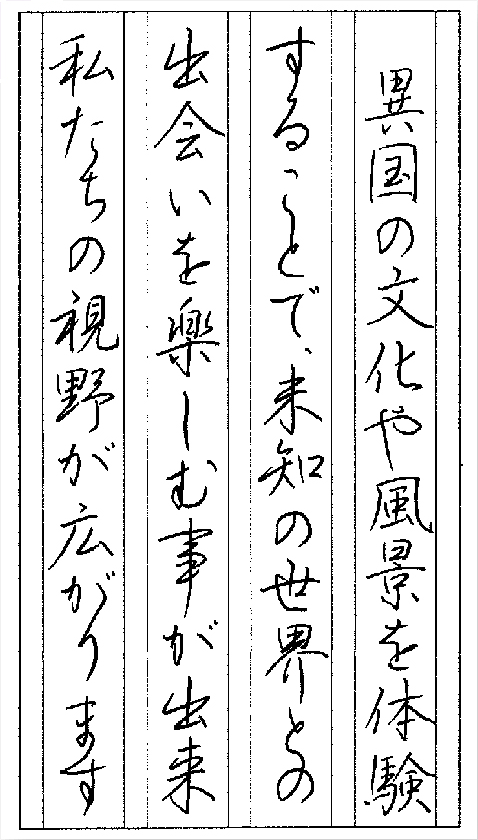 異国の文化や風景を体験
することで、未知の世界との
出会いを楽しむ事が出来
私たちの視野が広がります